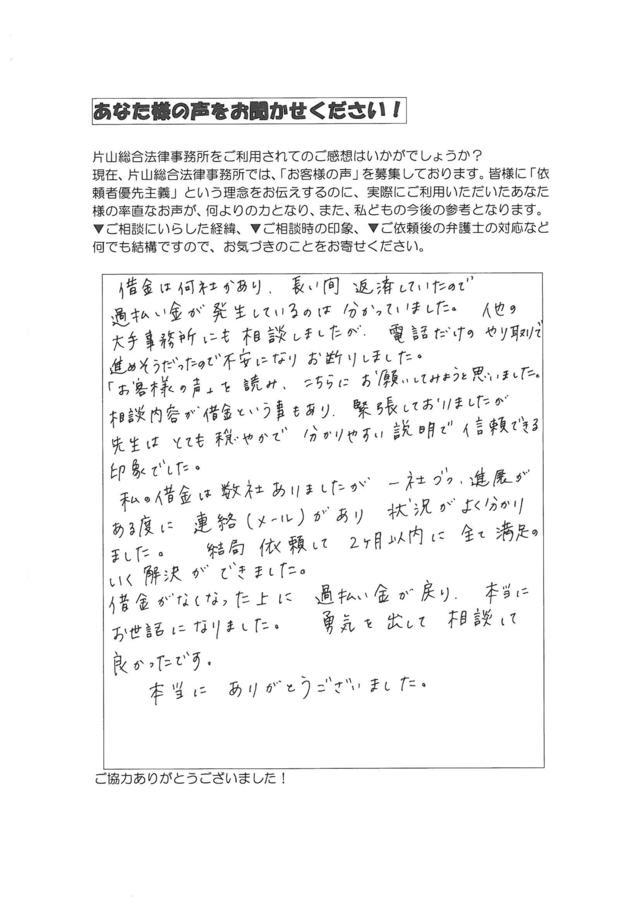 あなた様の声をお聞かせください！
片山総合法律事務所をご利用されてのご感想はいかがでしょうか？
現在、片山総合法律事務所では、「お客様の声」を募集しております。皆様に「依
頼者優先主義」という理念をお伝えするのに、実際にご利用いただいたあなた
様の率直なお声が、何よりの力となり、また、私どもの今後の参考となります。
▼ご相談にいらした経緯、▼ご相談時の印象、▼ご依頼後の弁護士の対応など
何でも結構ですので、お気づきのことをお寄せください。
借金は何社かあり、長い間 返済していたので
過払い金が発生しているのは分かっていました。 他の
大手事務所にも相談しましたが、電話だけのやり取りで
進めそうだったので不安になりお断りしました。
「お客様の声」を読み、こちらにお願いしてみようと思いました。
相談内容が借金という事もあり、緊張しておりましたが
先生はとても穏やかで 分かりやすい説明で信頼できる
印象でした。
私の借金は数社ありましたが 一社づつ、進展が
ある度に 連絡(メール)があり 状況がよく分かり
ました。 結局 依頼して 2ヶ月以内に全て満足の
いく解決ができました。
借金がなくなった上に 過払い金が戻り、本当に
お世話になりました。 勇気を出して 相談して
良かったです。
本当に ありがとうございました。
ご協力ありがとうございました！